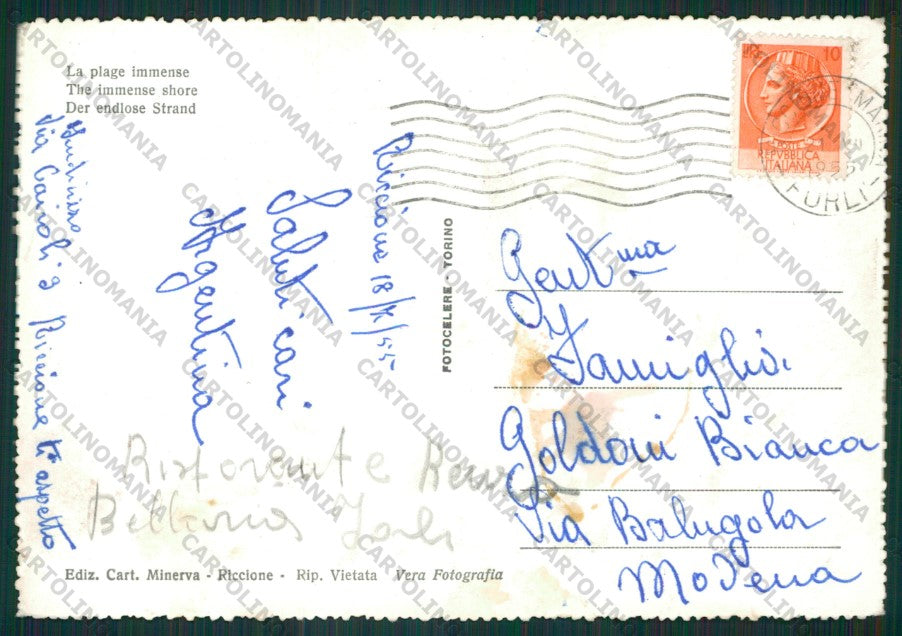 La plage immense
The immense shore
Der endlose Strand
Via Cairoli 9 Riccione ti aspetto
Riccione 18/7/55
Saluti cari
Argentina
FOTOCELERE - TORINO
10
POSTE
REPVBBLICA
ITALIANA
FORLI
Gent.ma
Famiglia
Goldoni Bianca
Via Balugola
Modena
Ristorante
Bellaria Forli
Ediz. Cart. Minerva - Riccione - Rip. Vietata Vera Fotografia
CARTOLINOMANIA